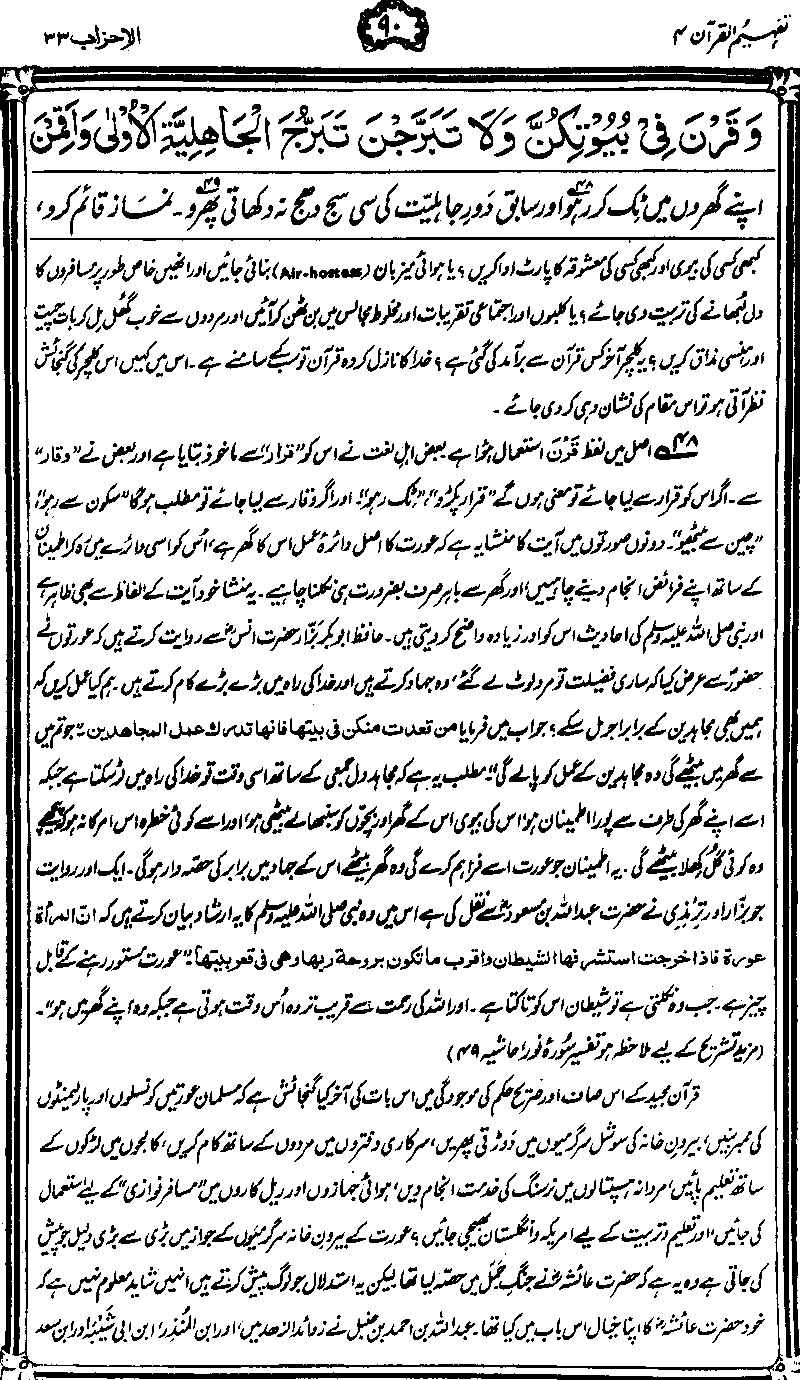 تفہیم القرآن ۴
۹۰
الاحزاب ۳۳
وَقَرْنَ فِیْ بُیُوْتِکُنَّ وَلَا تَبَرَّجْنَ تَبَرُّجَ الْجَاهِلِیَّةِ الْاُوْلٰی وَاَقِمْنَ
اپنے گھروں میں ٹِک کر رہو۴۸ اور سابق دَورِ جاہلیّت کی سی سج دھج نہ دکھاتی پھرو۴۹۔ نماز قائم کرو،
کبھی کسی کی بیوی اور کبھی کسی کی معشوقہ کا پارٹ ادا کریں؟ یا ہوائی میزبان (Air-hostess) بنائی جائیں اور انھیں خاص طور پر مسافروں کا
دل لُبھانے کی تربیت دی جائے؟ یا کلبوں اور اجتماعی تقریبات اور مخلوط مجالس میں بن ٹھن کر آئیں اور مردوں سے خوب گھُل مِل کر بات چیت
اور ہنسی مذاق کریں؟ یہ کلچر آخر کس قرآن سے برآمد کی گئی ہے؟ خدا کا نازل کردہ قرآن تو سب کے سامنے ہے۔ اس میں کہیں اس کلچر کی گنجائش
نظر آتی ہو تو اس مقام کی نشان دہی کر دی جائے۔
۴۸ اصل میں لفظ قَرْنَ استعمال ہوا ہے بعض اہلِ لغت نے اس کو ”قرار“ سے ماخوذ بتایا ہے اور بعض نے ”وقار“
سے۔ اگر اس کو قرار سے لیا جائے تو معنی ہوں گے ”قرار پکڑو“، ”ٹِک رہو“۔ اور اگر وقار سے لیا جائے تو مطلب ہوگا ”سکون سے رہو“،
”چین سے بیٹھو“۔ دونوں صورتوں میں آیت کا منشا یہ ہے کہ عورت کا اصل دائرۂ عمل اس کا گھر ہے، اُس کو اسی دائرے میں رہ کر اطمینان
کے ساتھ اپنے فرائض انجام دینے چاہییں، اور گھر سے باہر صرف بضرورت ہی نکلنا چاہیے۔ یہ منشا خود آیت کے الفاظ سے بھی ظاہر ہے
اور نبی صلی اللہ علیہ وسلم کی احادیث اس کو اور زیادہ واضح کر دیتی ہیں۔ حافظ ابوبکر بزّار حضرت انسؓ سے روایت کرتے ہیں کہ عورتوں نے
حضورؐ سے عرض کیا کہ ساری فضیلت تو مرد لوٹ لے گئے، وہ جہاد کرتے ہیں اور خدا کی راہ میں بڑے بڑے کام کرتے ہیں۔ ہم کیا عمل کریں کہ
ہمیں بھی مجاہدین کے برابر اجر مل سکے؟ جواب میں فرمایا من قعدت منکن فی بیتها فانها تدرك عمل المجاهدین۔ ”جو تم میں
سے گھر میں بیٹھے گی وہ مجاہدین کے عمل کو پالے گی“۔ مطلب یہ ہے کہ مجاہد دل جمعی کے ساتھ اسی وقت تو خدا کی راہ میں لڑ سکتا ہے جبکہ
اسے اپنے گھر کی طرف سے پورا اطمینان ہو، اس کی بیوی اس کے گھر اور بچّوں کو سنبھالے بیٹھی ہو، اور اسے کوئی خطرہ اس امر کا نہ ہو کہ پیچھے
وہ کوئی گُل کھِلا بیٹھے گی۔ یہ اطمینان جو عورت اسے فراہم کرے گی وہ گھر بیٹھے اس کے جہاد میں برابر کی حصّہ دار ہوگی۔ ایک اور روایت
جو بزّار اور ترمذی نے حضرت عبداللہ بن مسعودؓ سے نقل کی ہے اس میں وہ نبی صلی اللہ علیہ وسلم کا یہ ارشاد بیان کرتے ہیں کہ انّ المرأة
عورة فاذا خرجت استشرفها الشیطان واقرب ماتکون بروحة ربها وهی فی قعر بیتها۔ ”عورت مستور رہنے کے قابل
چیز ہے۔ جب وہ نکلتی ہے تو شیطان اس کو تاکتا ہے۔ اور اللہ کی رحمت سے قریب تر وہ اُس وقت ہوتی ہے جبکہ وہ اپنے گھر میں ہو“۔
(مزید تشریح کے لیے ملاحظہ ہو تفسیر سُورۂ نور، حاشیہ ۴۹)
قرآن مجید کے اس صاف اور صریح حکم کی موجودگی میں اس بات کی آخر کیا گنجائش ہے کہ مسلمان عورتیں کونسلوں اور پارلیمنٹوں
کی ممبر بنیں، بیرونِ خانہ کی سوشل سرگرمیوں میں دَوڑتی پھریں، سرکاری دفتروں میں مردوں کے ساتھ کام کریں، کالجوں میں لڑکوں کے
ساتھ تعلیم پائیں، مردانہ ہسپتالوں میں نرسنگ کی خدمت انجام دیں، ہوائی جہازوں اور ریل کاروں میں ”مسافر نوازی“ کے لیے استعمال
کی جائیں، اور تعلیم و تربیت کے لیے امریکہ و انگلستان بھیجی جائیں؟ عورت کے بیرونِ خانہ سرگرمیوں کے جواز میں بڑی سے بڑی دلیل جو پیش
کی جاتی ہے وہ یہ ہے کہ حضرت عائشہؓ نے جنگِ جَمَل میں حصّہ لیا تھا لیکن یہ استدلال جو لوگ پیش کرتے ہیں انہیں شاید معلوم نہیں ہے کہ
خود حضرت عائشہؓ کا اپنا خیال اس باب میں کیا تھا۔ عبداللہ بن احمد بن حنبل نے زوائد الزھد میں، اور ابن المُنذِر، ابن ابی شَیْبَہ اور ابن سعد